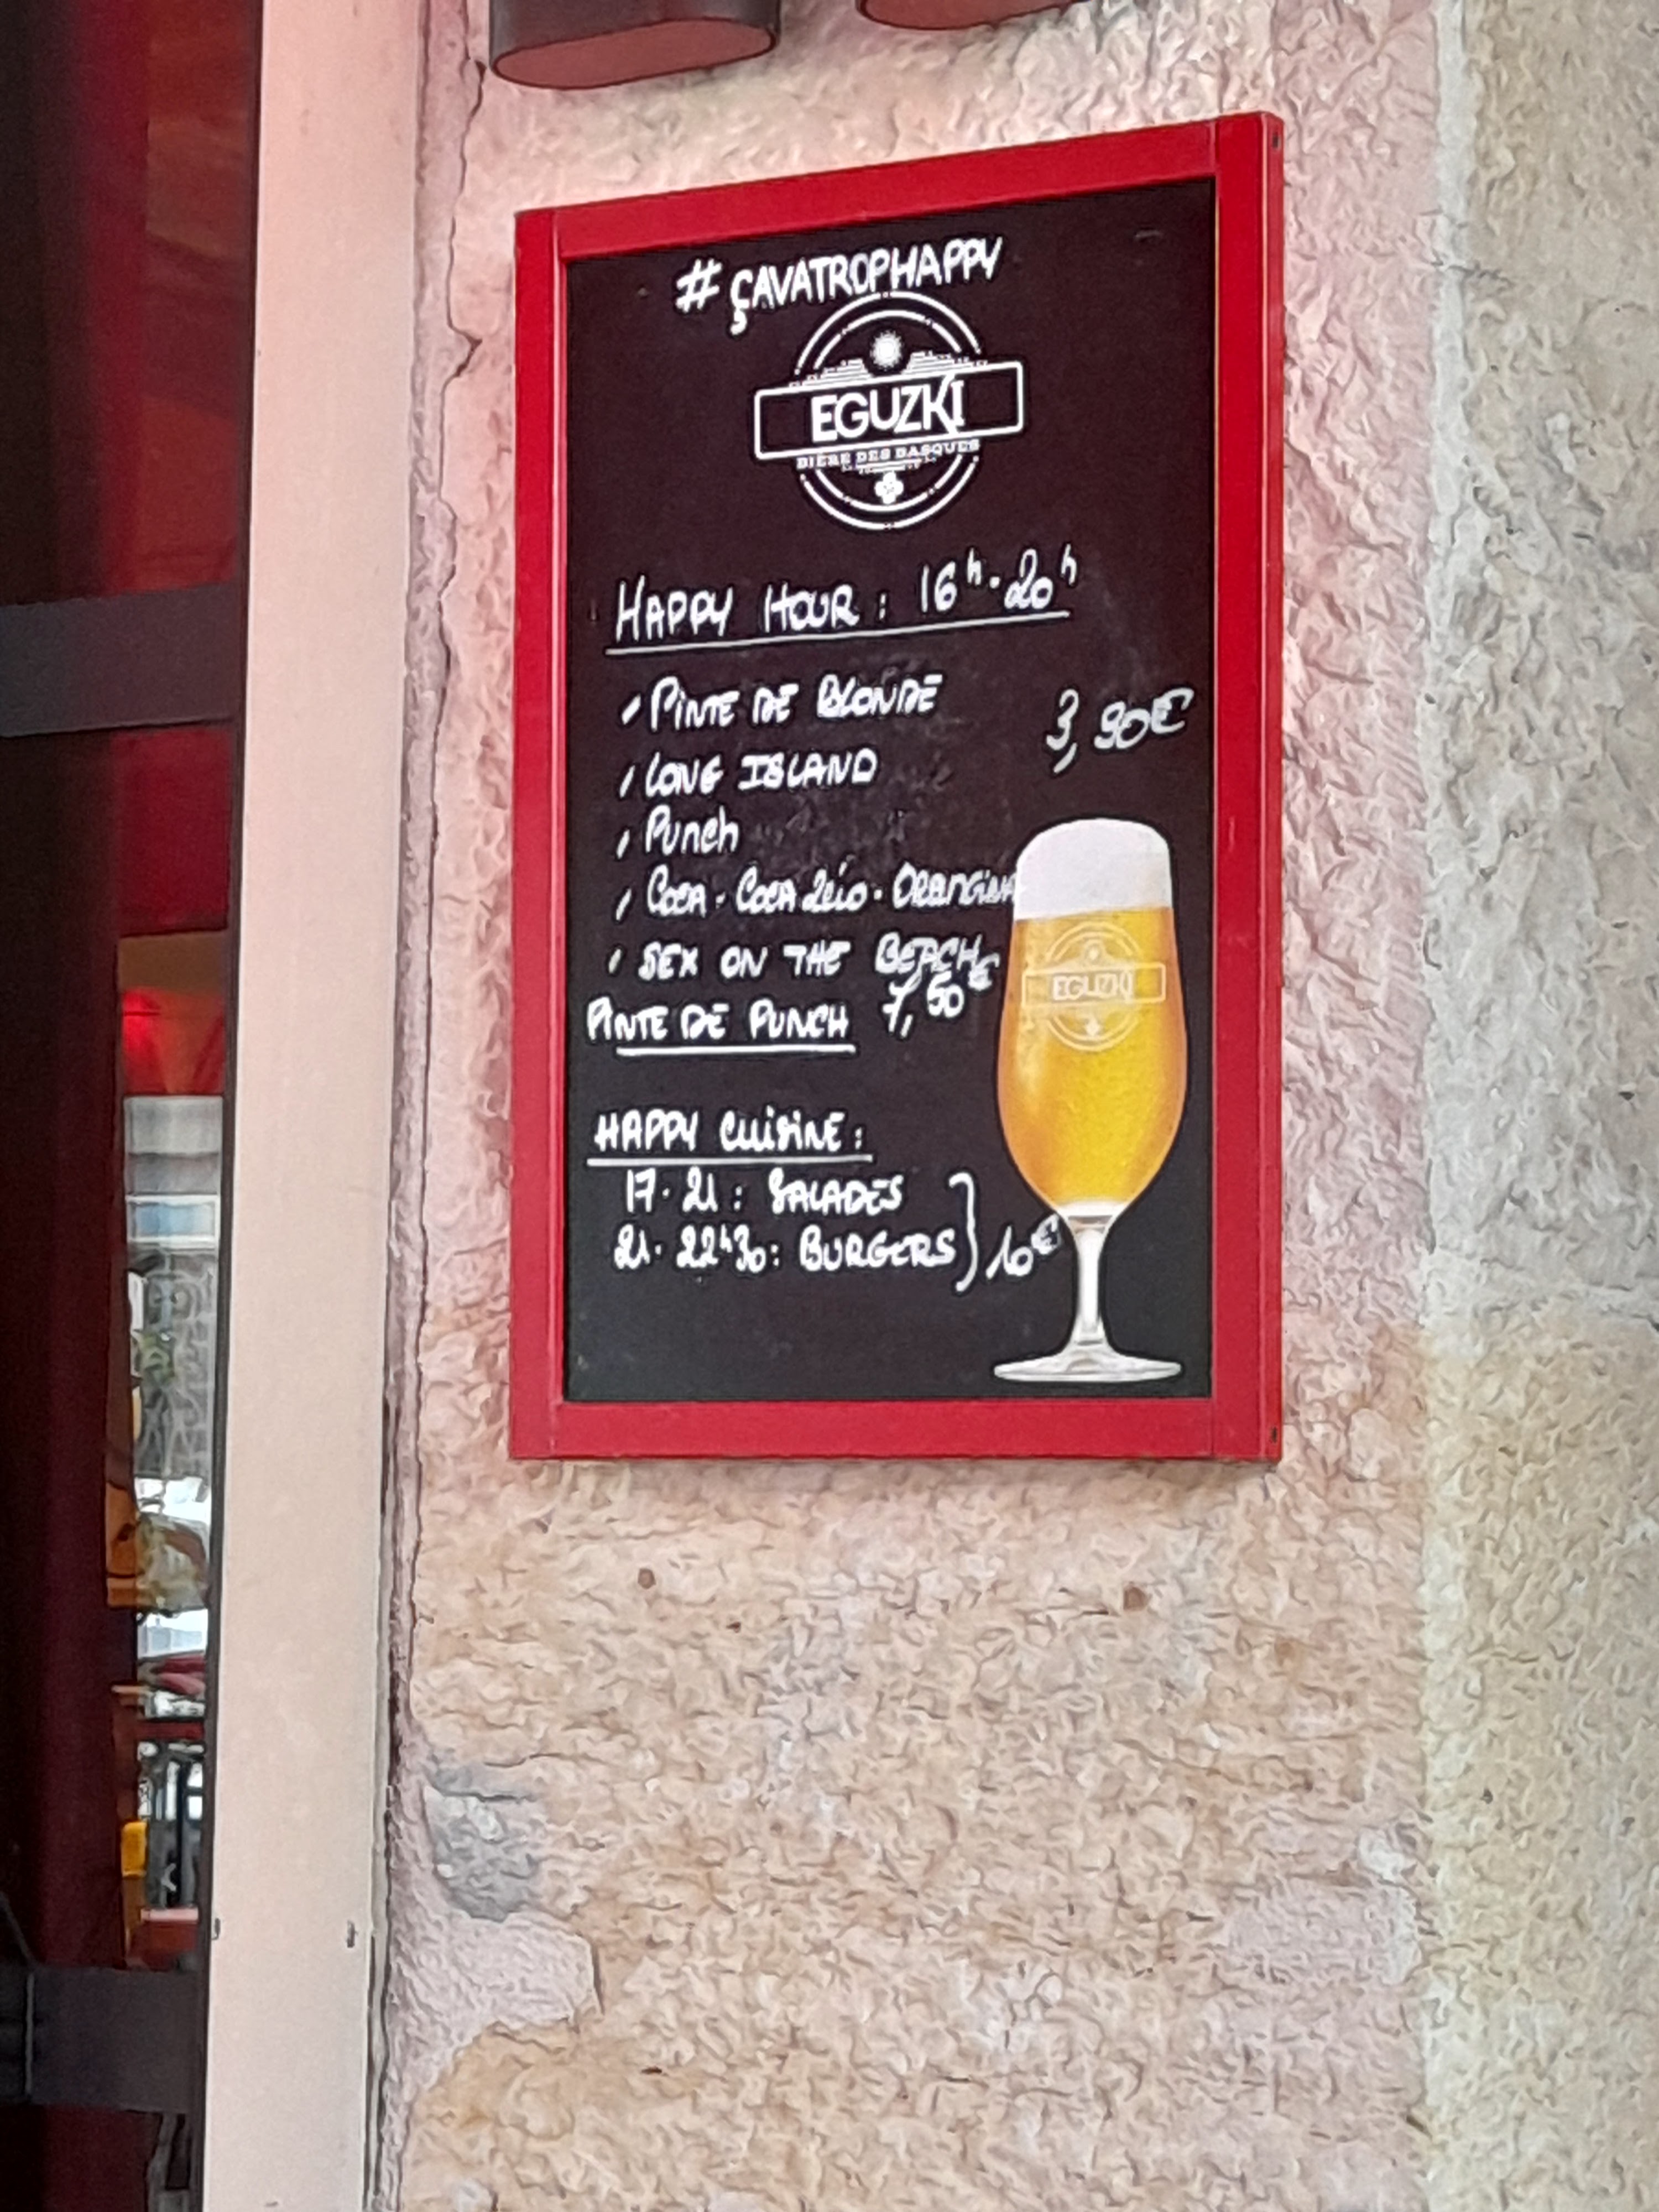 # ÇAVATROPHAPPY
EGUZKI
BIÈRE DES BASQUES
HAPPY HOUR : 16h - 20h
PINTE DE BLONDE 3,90€
LONG ISLAND
Punch
COCA - COCA Zéro - ORANGINA
SEX ON THE BEACH
PINTE DE PUNCH 7,50€
EGUZKI
HAPPY CUISINE :
17 - 21 : SALADES
21 - 22h30 : BURGERS } 10€